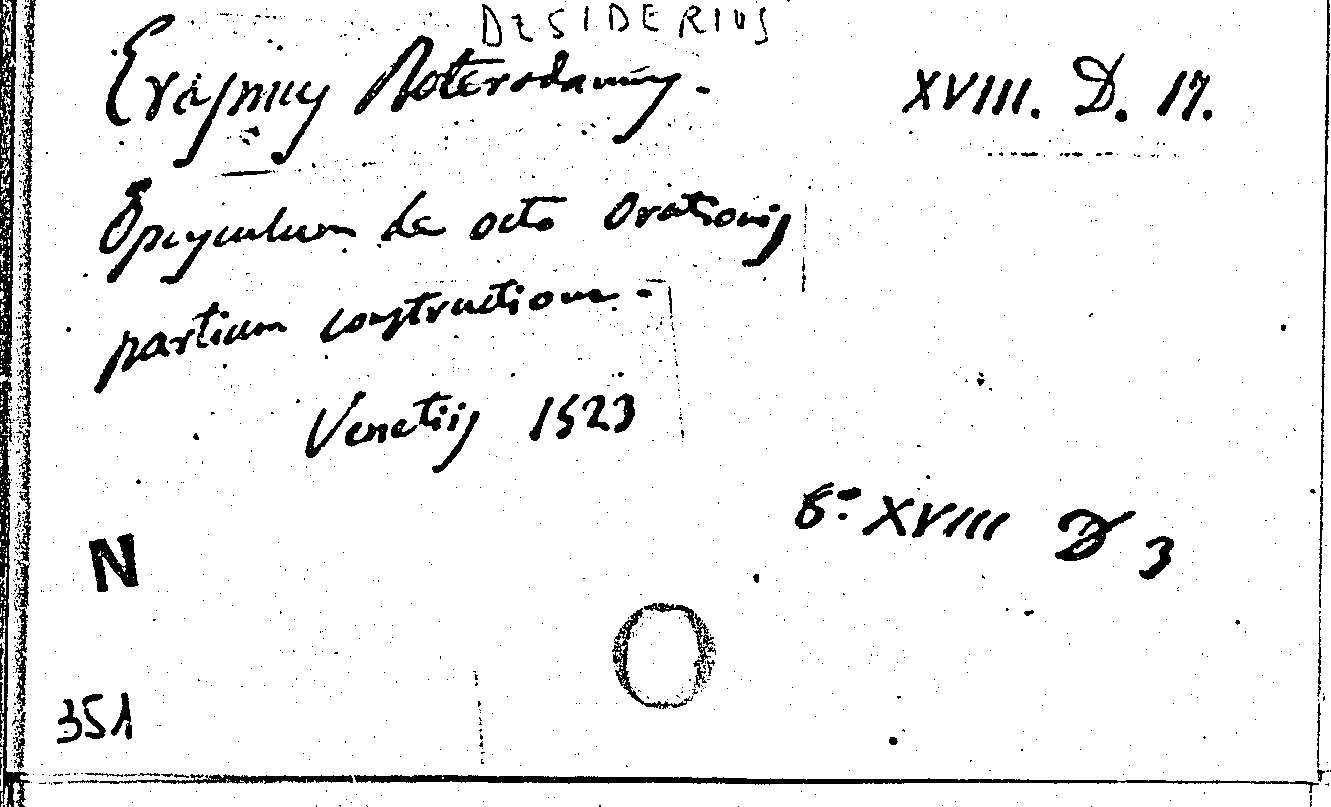 DESIDERIUS
Erasmus Roterodamus. XVIII. D. 17.
Opusculum de octo Orationis
partium constructione.
Venetiis 1523
6.= XVIII D 3
N
351